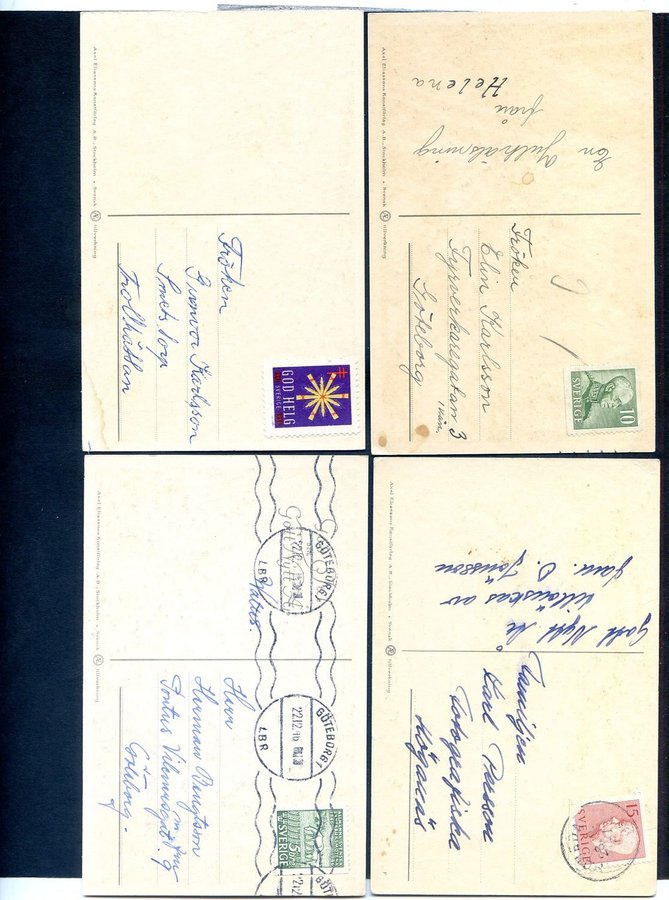 Axel Eliassons Konstförlag A. B., Stockholm • Svensk
tillverkning
Fröken
Gunvor Karlsson
Smetstorp
Trollhättan
GOD HELG
SVERIGE
Axel Eliassons Konstförlag A. B., Stockholm • Svensk
tillverkning
En Julhälsning
från
Helena
Fröken
Elin Karlsson
Fyrverkaregatan 3
Göteborg
SVERIGE
10
Axel Eliassons Konstförlag A. B., Stockholm • Svensk
tillverkning
Herr
Herman Bengtsson
m. fru
Pontus Vilmansgat. 9
Göteborg.
GÖTEBORG 1
LBR
GÖTEBORG 1
22.12.46
LBR
SVERIGE
5
Axel Eliassons Konstförlag A. B., Stockholm • Svensk
tillverkning
Gott Nytt År
tillönskas av
fam. O. Jönsson
Familjen
Karl Persson
Fotografiska
Höganäs
15
SVERIGE